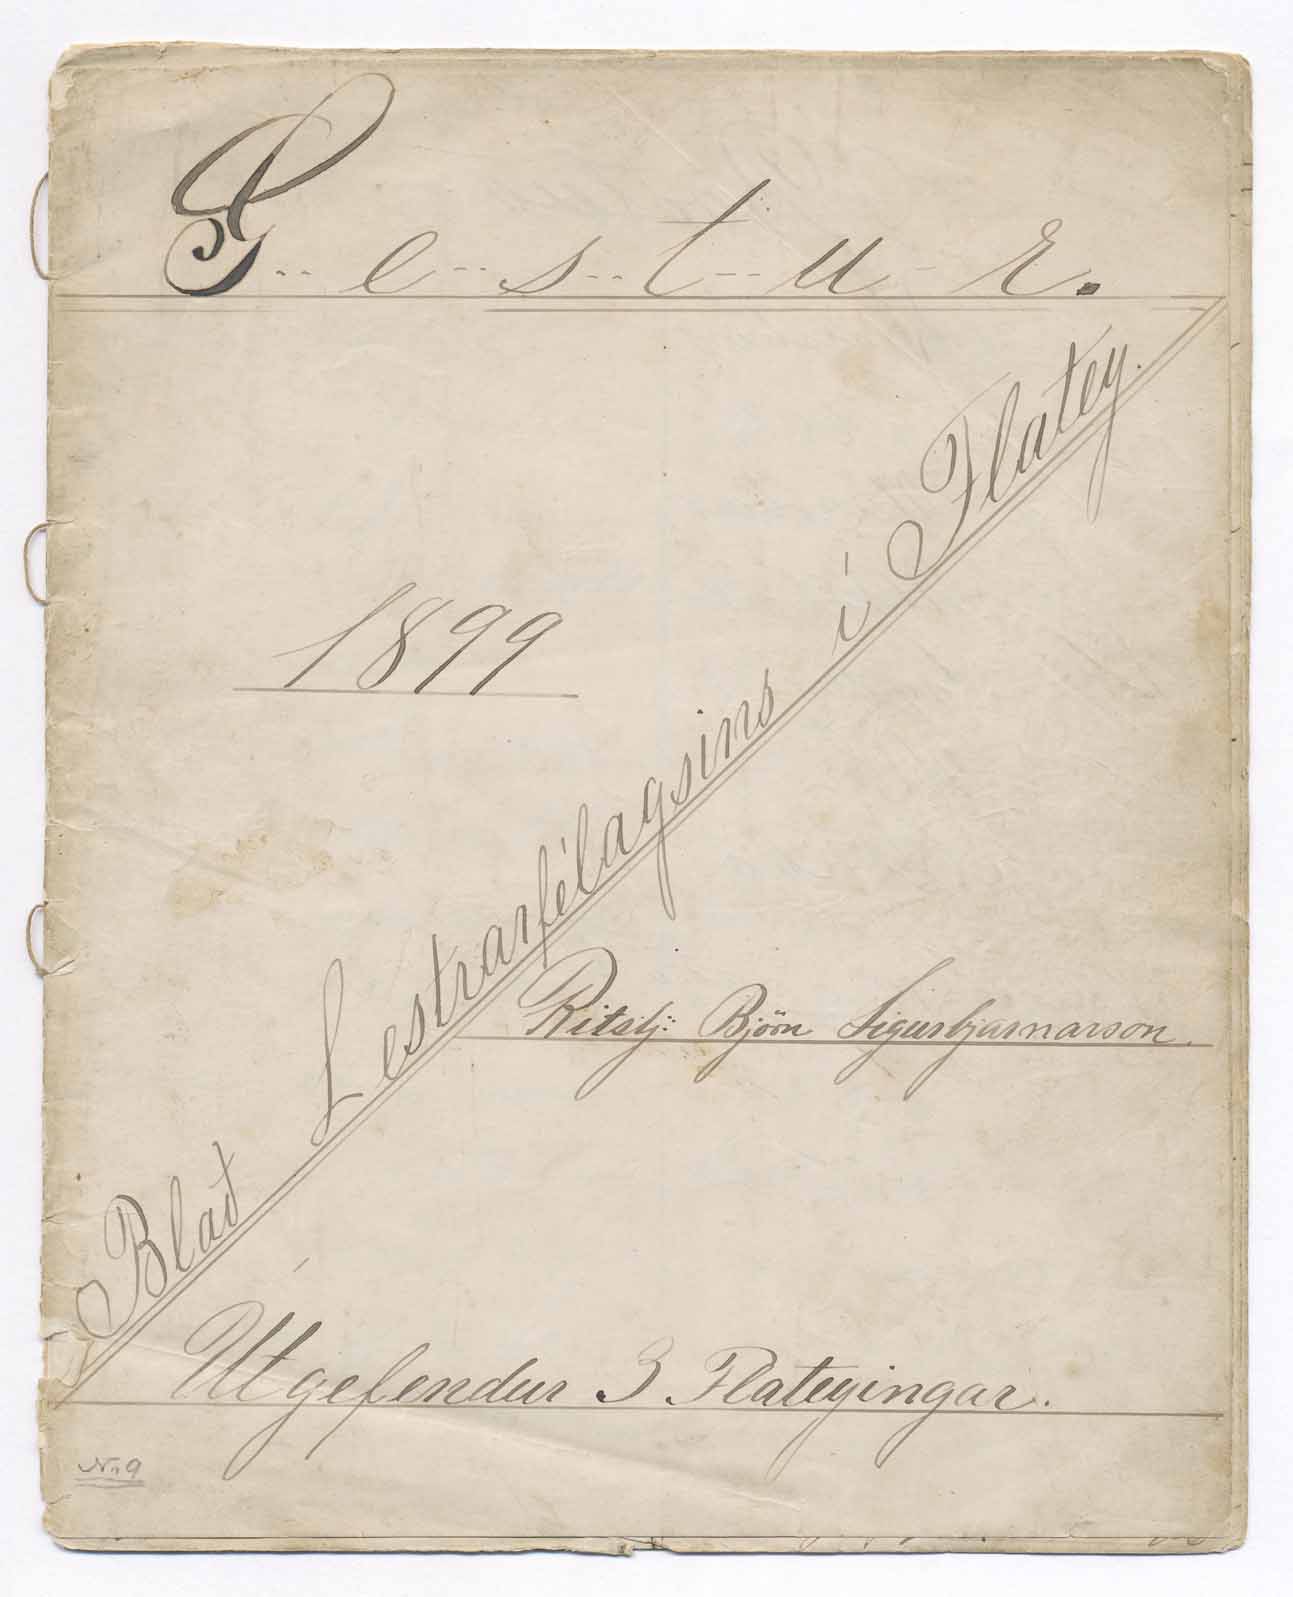 G e s t u r.
1899
Blað Lestrarfélagsins í Flatey.
Ritstj: Björn Sigurbjarnarson.
Útgefendur 3 Flateyingar.
Nr 9